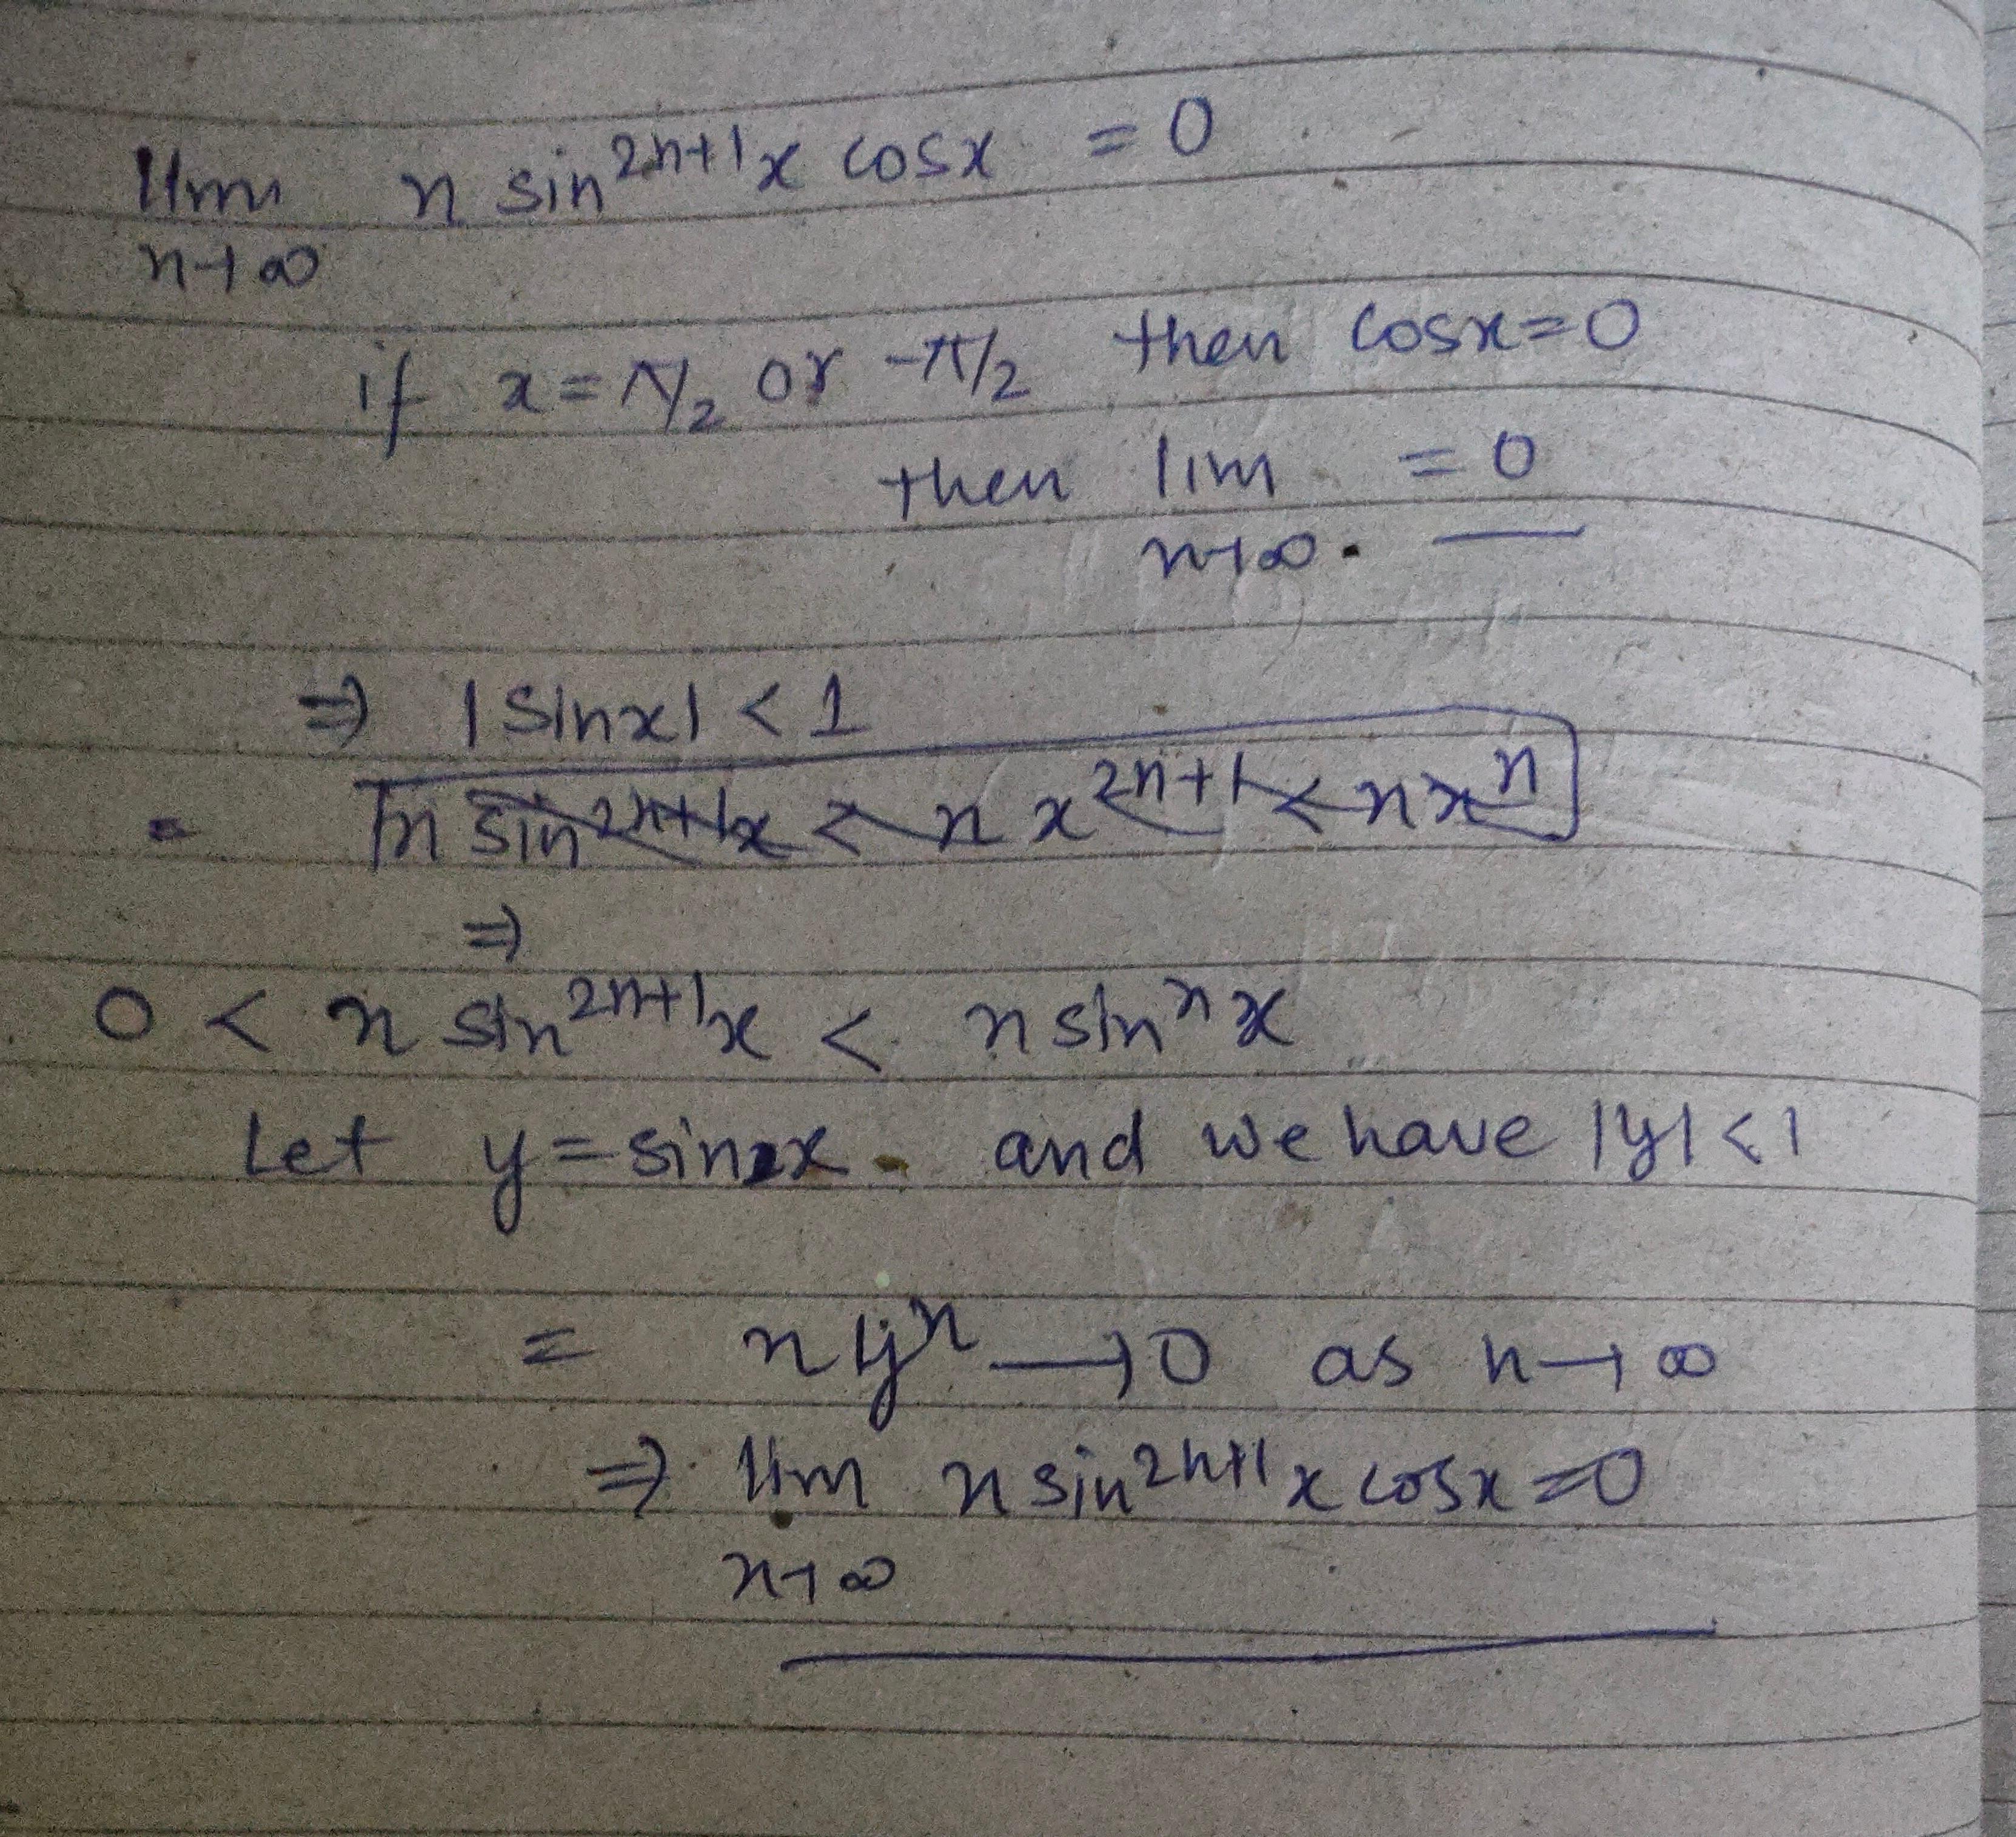 lim n sin^{2n+1}x cosx = 0
n→∞
if x = π/2 or -π/2 then cosx=0
then lim = 0
n→∞.
⇒ |sinx| < 1
= n sin^{2n+1}x < n x^{2n+1} < n x^n
⇒
0 < n sin^{2n+1}x < n sin^n x
Let y = sinx. and we have |y| < 1
= n y^n → 0 as n→∞
⇒ lim n sin^{2n+1}x cosx = 0
n→∞